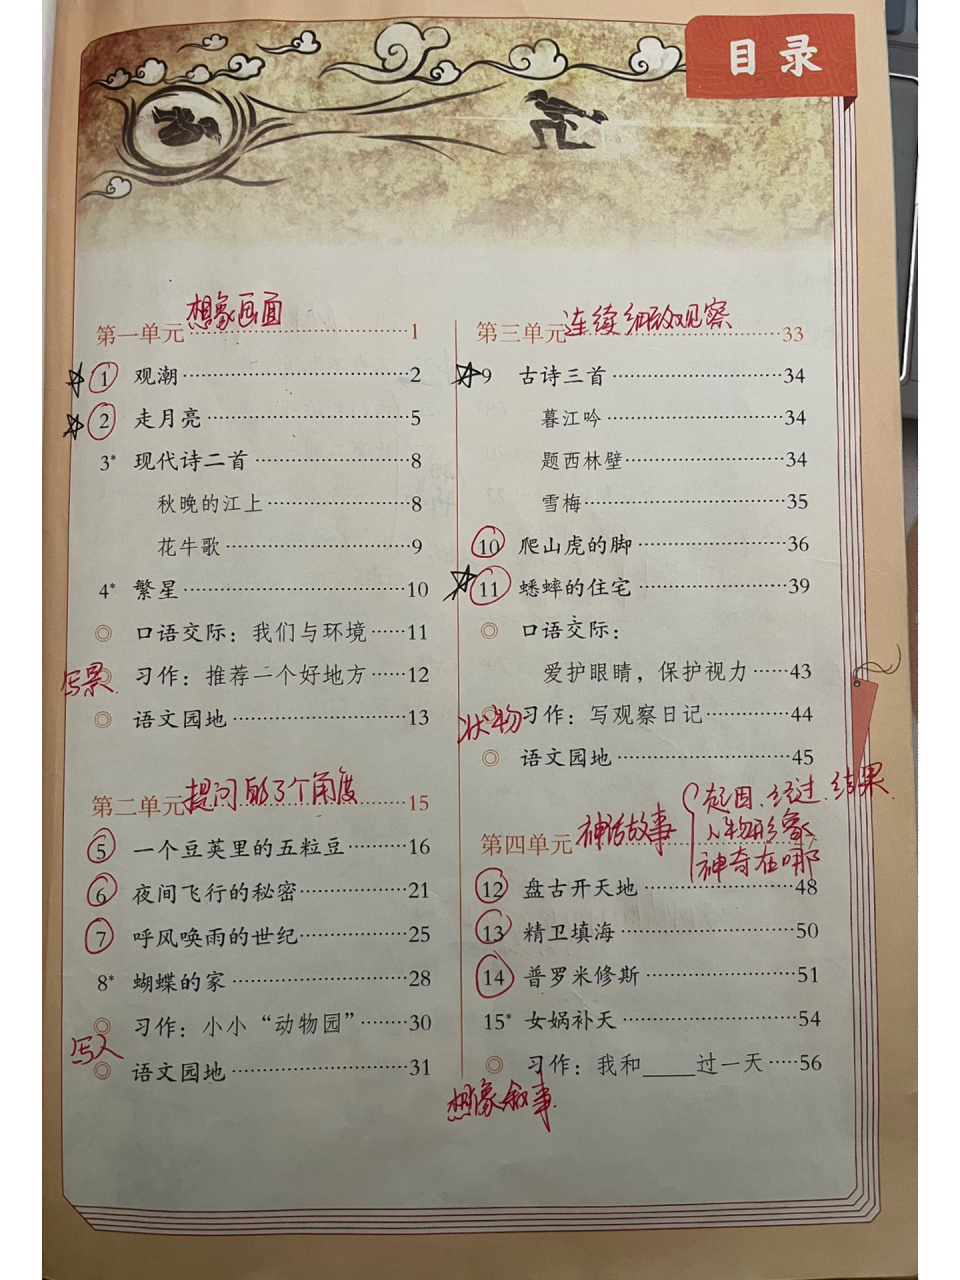 目录
想象画面
第一单元 1
1 观潮 2
2 走月亮 5
3* 现代诗二首 8
秋晚的江上 8
花牛歌 9
4* 繁星 10
口语交际：我们与环境 11
写景
习作：推荐一个好地方 12
语文园地 13
提问的3个角度
第二单元 15
5 一个豆荚里的五粒豆 16
6 夜间飞行的秘密 21
7 呼风唤雨的世纪 25
8* 蝴蝶的家 28
习作：小小“动物园” 30
写人
语文园地 31
连续细致观察
第三单元 33
9 古诗三首 34
暮江吟 34
题西林壁 34
雪梅 35
10 爬山虎的脚 36
11 蟋蟀的住宅 39
口语交际：
爱护眼睛，保护视力 43
状物
习作：写观察日记 44
语文园地 45
起因、经过、结果
神话故事
人物形象
第四单元
神奇在哪
12 盘古开天地 48
13 精卫填海 50
14 普罗米修斯 51
15* 女娲补天 54
习作：我和____过一天 56
想象叙事